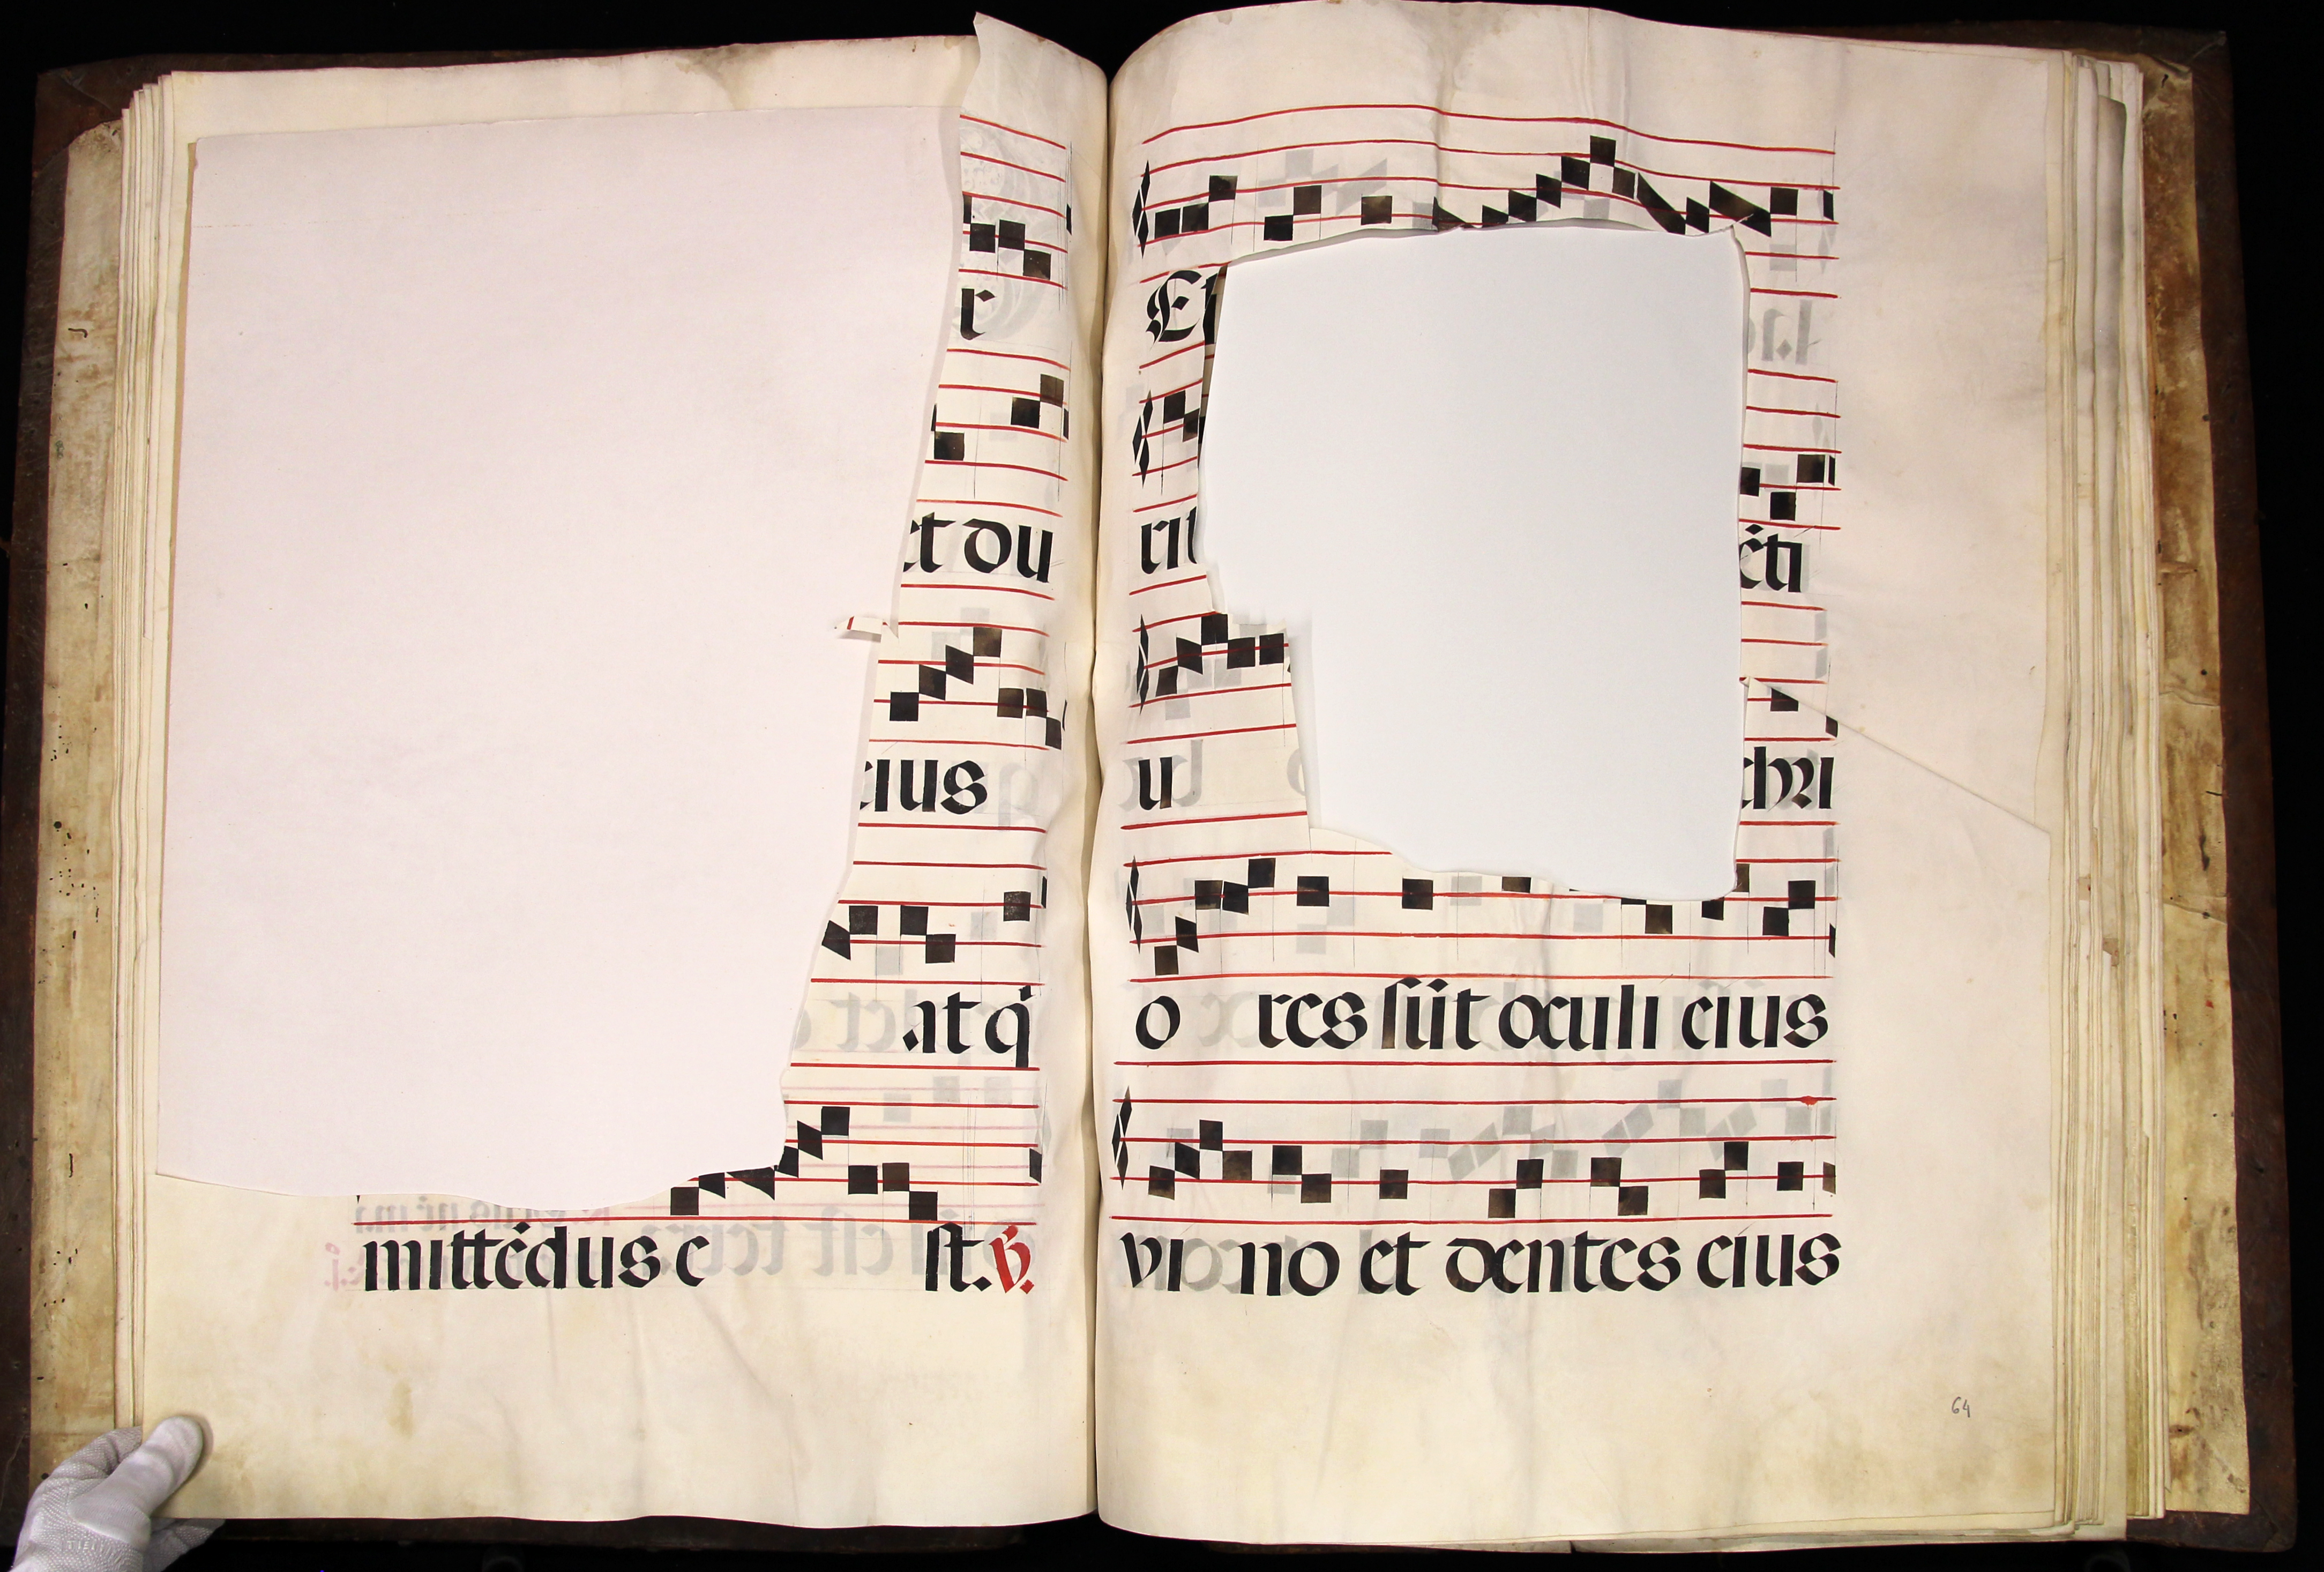 r
et du
cius
at q̇
mittēdus e st. ℣.
Et
rit ēti
u chri
o res sūt oculi eius
vi no et dentes eius
64